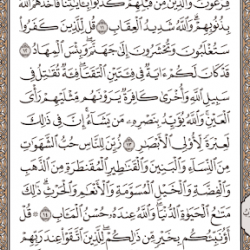 فِرْعَوْنَ وَالَّذِينَ مِن قَبْلِهِمْ كَذَّبُوا بِآيَاتِنَا فَأَخَذَهُمُ اللَّهُ
بِذُنُوبِهِمْ وَاللَّهُ شَدِيدُ الْعِقَابِ ١١ قُل لِّلَّذِينَ كَفَرُوا
سَتُغْلَبُونَ وَتُحْشَرُونَ إِلَىٰ جَهَنَّمَ وَبِئْسَ الْمِهَادُ ١٢
قَدْ كَانَ لَكُمْ آيَةٌ فِي فِئَتَيْنِ الْتَقَتَا فِئَةٌ تُقَاتِلُ فِي
سَبِيلِ اللَّهِ وَأُخْرَىٰ كَافِرَةٌ يَرَوْنَهُم مِّثْلَيْهِمْ رَأْيَ
الْعَيْنِ وَاللَّهُ يُؤَيِّدُ بِنَصْرِهِ مَن يَشَاءُ إِنَّ فِي ذَٰلِكَ
لَعِبْرَةً لِّأُولِي الْأَبْصَارِ ١٣ زُيِّنَ لِلنَّاسِ حُبُّ الشَّهَوَاتِ
مِنَ النِّسَاءِ وَالْبَنِينَ وَالْقَنَاطِيرِ الْمُقَنطَرَةِ مِنَ الذَّهَبِ
وَالْفِضَّةِ وَالْخَيْلِ الْمُسَوَّمَةِ وَالْأَنْعَامِ وَالْحَرْثِ ذَٰلِكَ
مَتَاعُ الْحَيَاةِ الدُّنْيَا وَاللَّهُ عِندَهُ حُسْنُ الْمَآبِ ١٤ قُلْ
أَؤُنَبِّئُكُم بِخَيْرٍ مِّن ذَٰلِكُمْ لِلَّذِينَ اتَّقَوْا عِندَ رَبِّهِمْ